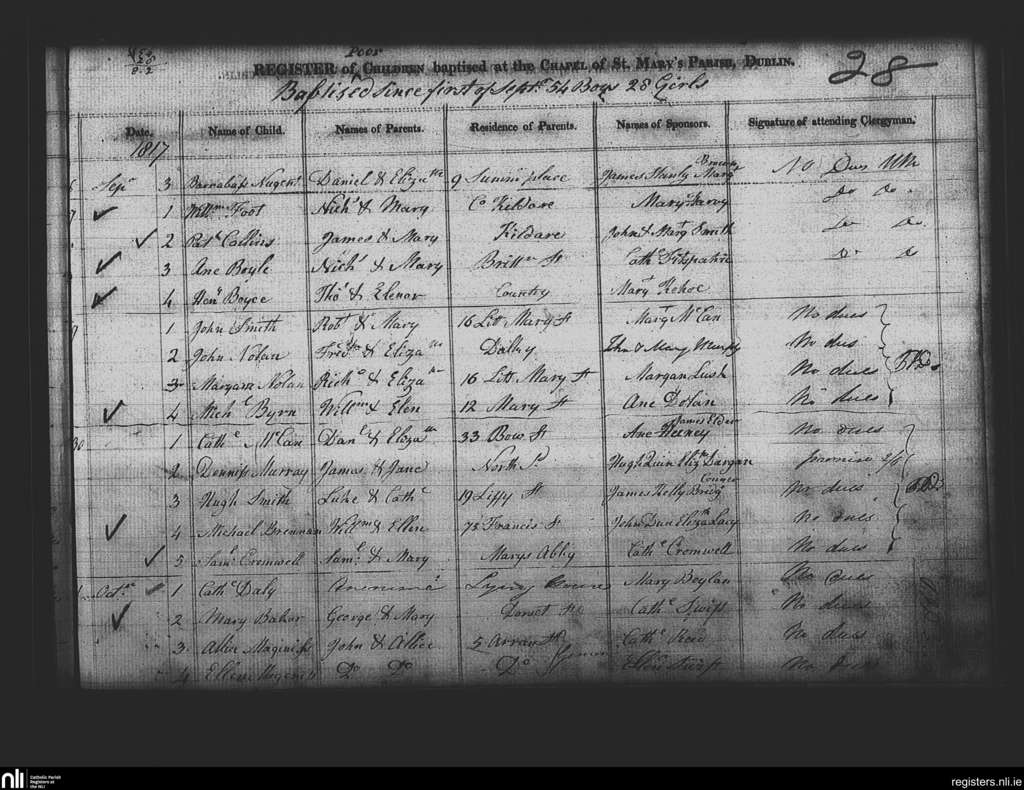 Poor
REGISTER of CHILDREN baptised at the CHAPEL of ST. MARY'S PARISH, DUBLIN.
28
Baptised Since first of Septr 54 Boys 28 Girls
Date. Name of Child. Names of Parents. Residence of Parents. Names of Sponsors. Signature of attending Clergyman.
1817
Sepr 3 Barnabass Nugent Daniel & Elizath 9 Summr place James Margt No Dues
1 Willm Foot Nichs & Mary Co Kildare Mary Do Do
2 Robt Collins James & Mary Kildare John & Margt Smith Do Do
3 Ane Boyle Nichs & Mary Brittn St Cathe Fitzpatrick Do Do
4 Henry Boyce Thos & Elenor Country Margt Kehoe
1 John Smith Robt & Mary 16 Litt Mary St Margt McCan No dues
2 John Nolan Fredk & Elizath Dalky Jhn & Mary Murphy No dues
3 Margaret Nolan Richd & Elizath 16 Litt Mary St Margart Lush No dues
4 Michl Byrn Willm & Elen 12 Mary St Ane Dolan No dues
James Elder
30 1 Cathe McCan Danl & Elizath 33 Bow St Ane No dues
2 Denniss Murray James & Jane North St Hugh Quin Elizth Dargan promise
Connor
3 Hugh Smith Luke & Cathe 19 Liffy St James Kelly Bridgt No dues
4 Michael Brennan Willm & Ellen 78 Francis St John Dun Elizath Lacy No dues
5 Saml Cromwell Saml & Mary Marys Abby Cathe Cromwell No dues
Octr 1 Cathe Daly Lying Mary Boylan No dues
2 Mary Baker George & Mary Dorset St Cathe Swift No dues
3 Allice Maginiss John & Allice 5 Array St Cathe No dues
4 Ellen Do Do Do Ellen Swift No dues
nli
Catholic Parish
Registers at
the NLI
registers.nli.ie